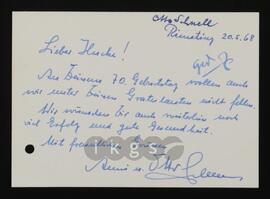 Otto Schnell
Dienstag 20.5.68
Lieber Hucke!
Zu Deinem 70. Geburtstag wollen auch
wir unter Deinen Gratulanten nicht fehlen.
Wir wünschen Dir auch weiterhin noch
viel Erfolg und gute Gesundheit.
Mit freundlichen
ikgs
Anni u. Otto